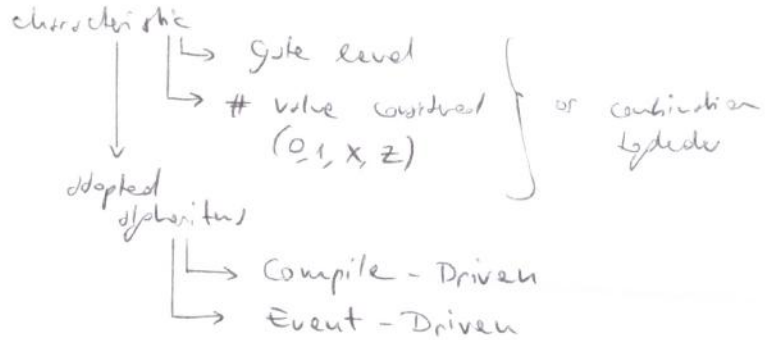 characteristic
gate level
# value considered
(0, 1, X, Z)
or combination
together
adopted
algorithms
Compile - Driven
Event - Driven